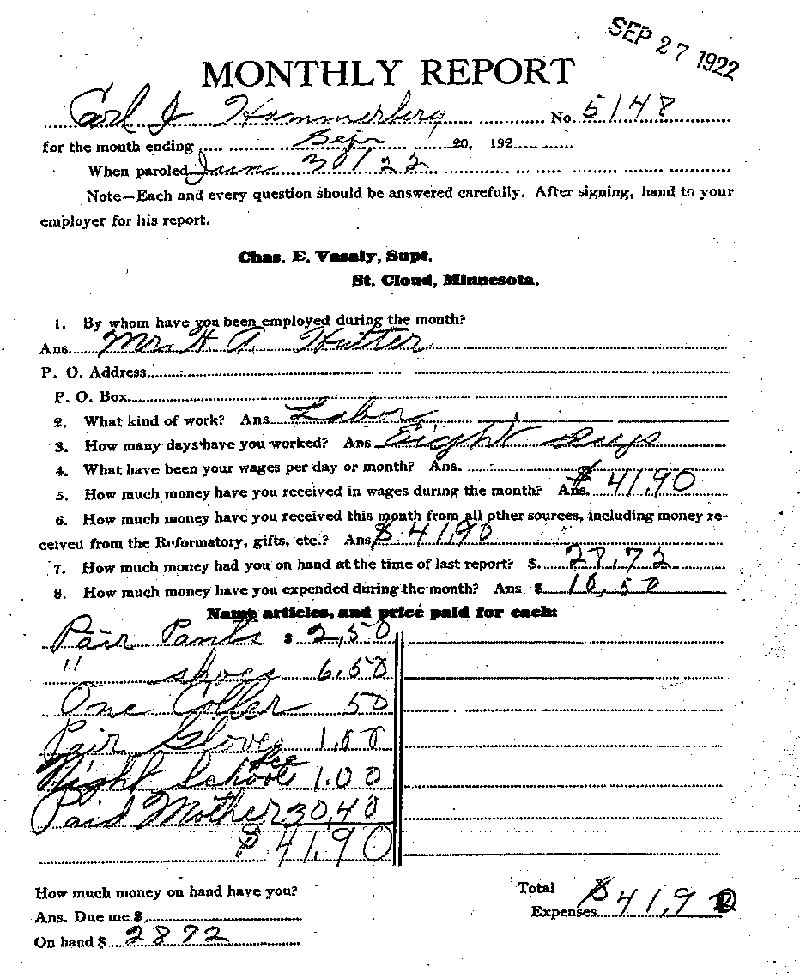 SEP 27 1922
MONTHLY REPORT
Carl J Hammerberg No. 5148
for the month ending Sep 20, 192
When paroled June 30/22
Note—Each and every question should be answered carefully. After signing, hand to your
employer for his report.
Chas. E. Vasaly, Supt.
St. Cloud, Minnesota.
1. By whom have you been employed during the month?
Ans. Mr. H A
P. O. Address
P. O. Box
2. What kind of work? Ans. Labor
3. How many days have you worked? Ans Eight days
4. What have been your wages per day or month? Ans.
5. How much money have you received in wages during the month? Ans. $41.90
6. How much money have you received this month from all other sources, including money re-
ceived from the Reformatory, gifts, etc.? Ans $41.90
7. How much money had you on hand at the time of last report? $ 27.72
8. How much money have you expended during the month? Ans $ 10.50
Name articles, and price paid for each:
Pair Pants $ 2.50
" shoes 6.50
One Coller 50
Pair Gloves 1.00
Night School fee 1.00
Paid Mother 30.40
$41.90
How much money on hand have you?
Ans. Due me $
On hand $ 2872
Total
Expenses $41.90